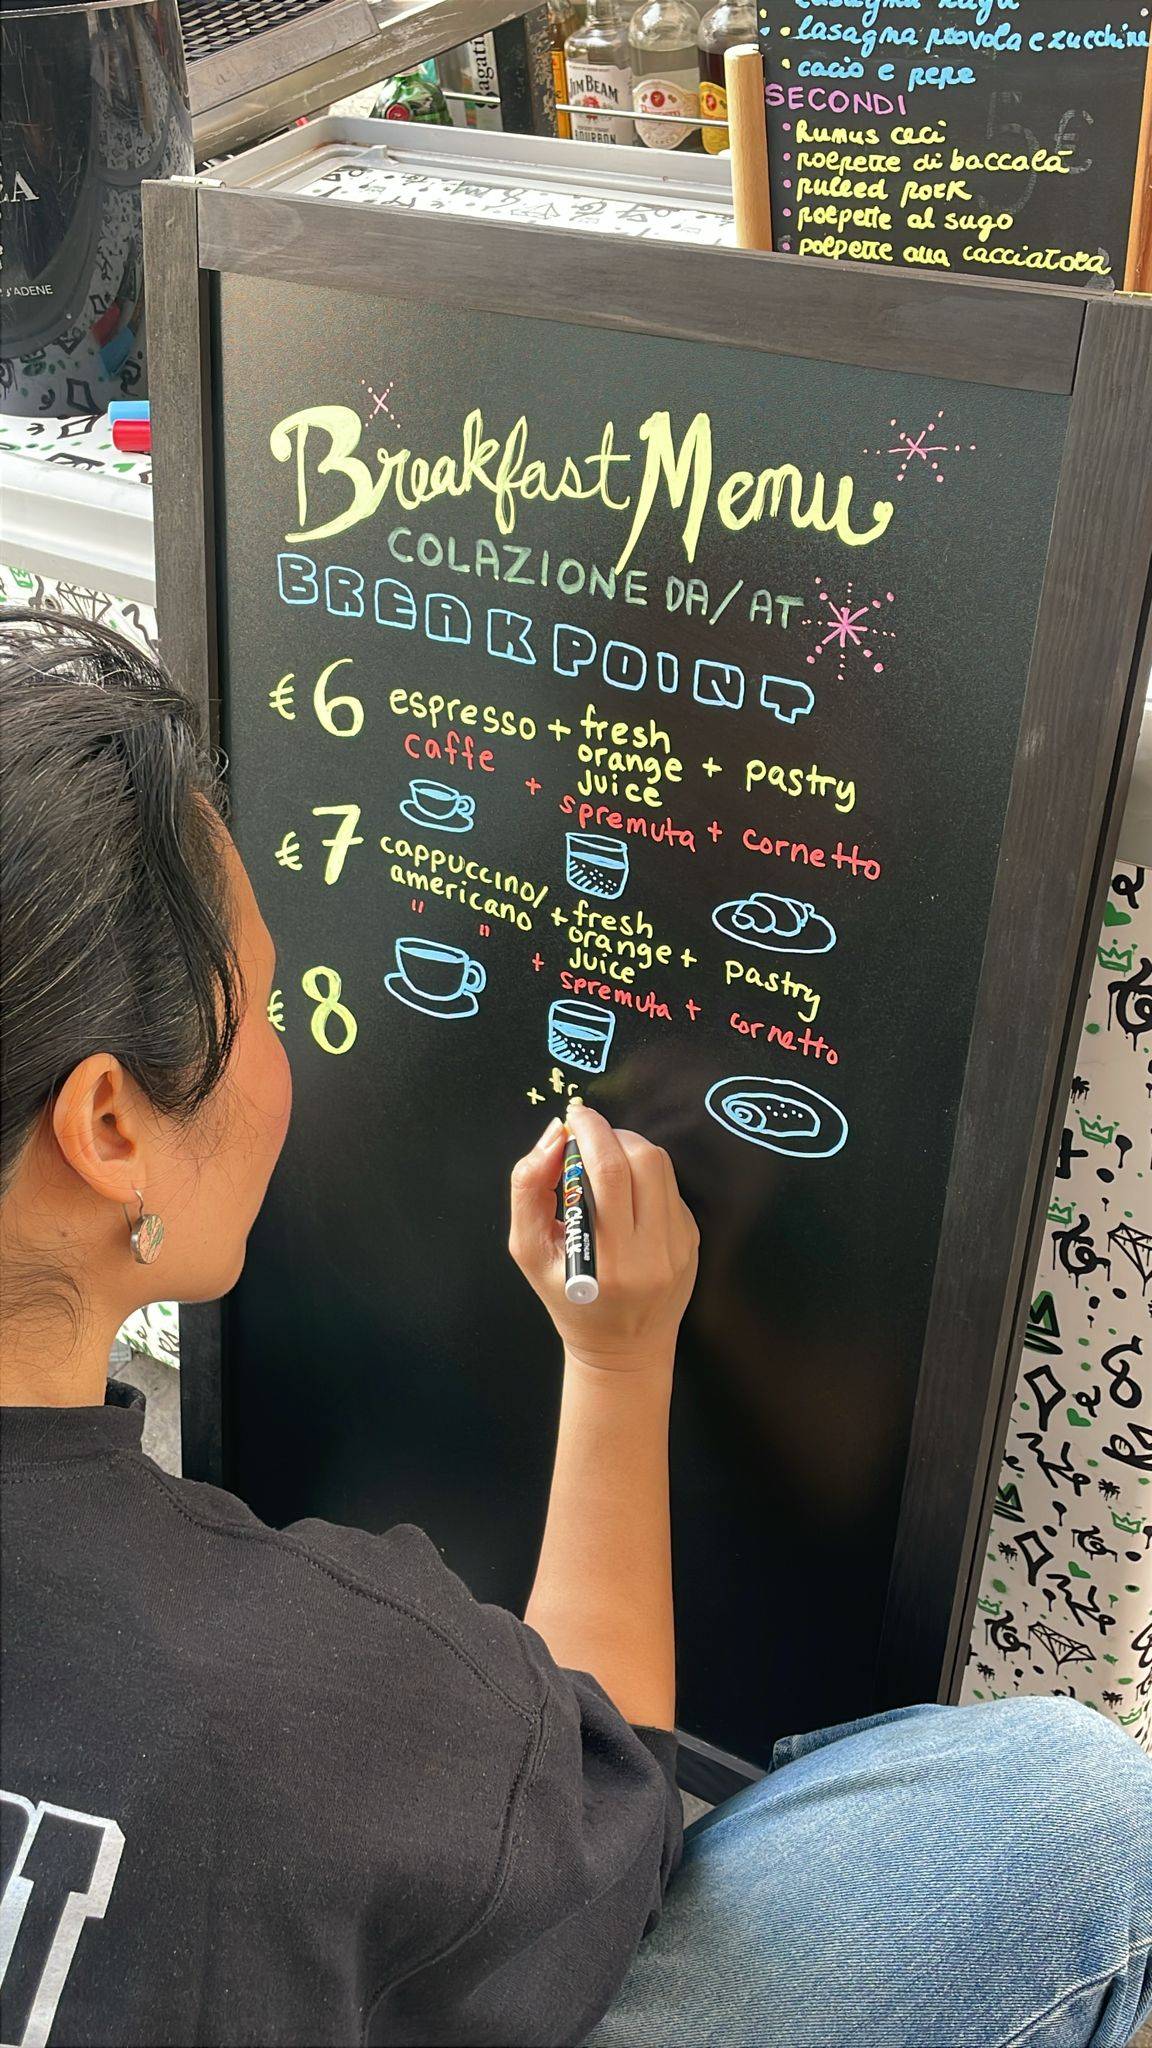 JIM BEAM
BOURBON
lasagna ragu
• lasagna provola e zucchine
• cacio e pepe
SECONDI
• Humus ceci
• polpette di baccalà
• pulled pork
• polpette al sugo
• polpette alla cacciatora
5€
Breakfast Menu
COLAZIONE DA/AT
BREAKPOINT
€ 6 espresso + fresh orange juice + pastry
caffe + spremuta + cornetto
€ 7 cappuccino/americano + fresh orange juice + pastry
" " + spremuta + cornetto
€ 8
+ fr
CHALK